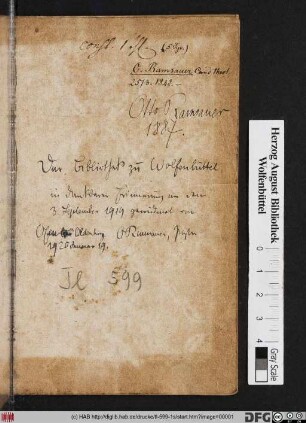 const. 1 fl. (5 Sgr.)
O. Ramsauer Cand. theol.
1848.
Otto Ramsauer
1887.
Der Bibliothek zu Wolfenbüttel
in dankbarer Erinnerung an den
3. September 1919 gewidmet von
Oldenburg O. Ramsauer,
1920 Januar 19.
Jl 599
Herzog August Bibliothek
Wolfenbüttel
0 1 2 3 4
Gray Scale
(c) HAB http://diglib.hab.de/drucke/tl-599-1s/start.htm?image=00001
HAB
DFG